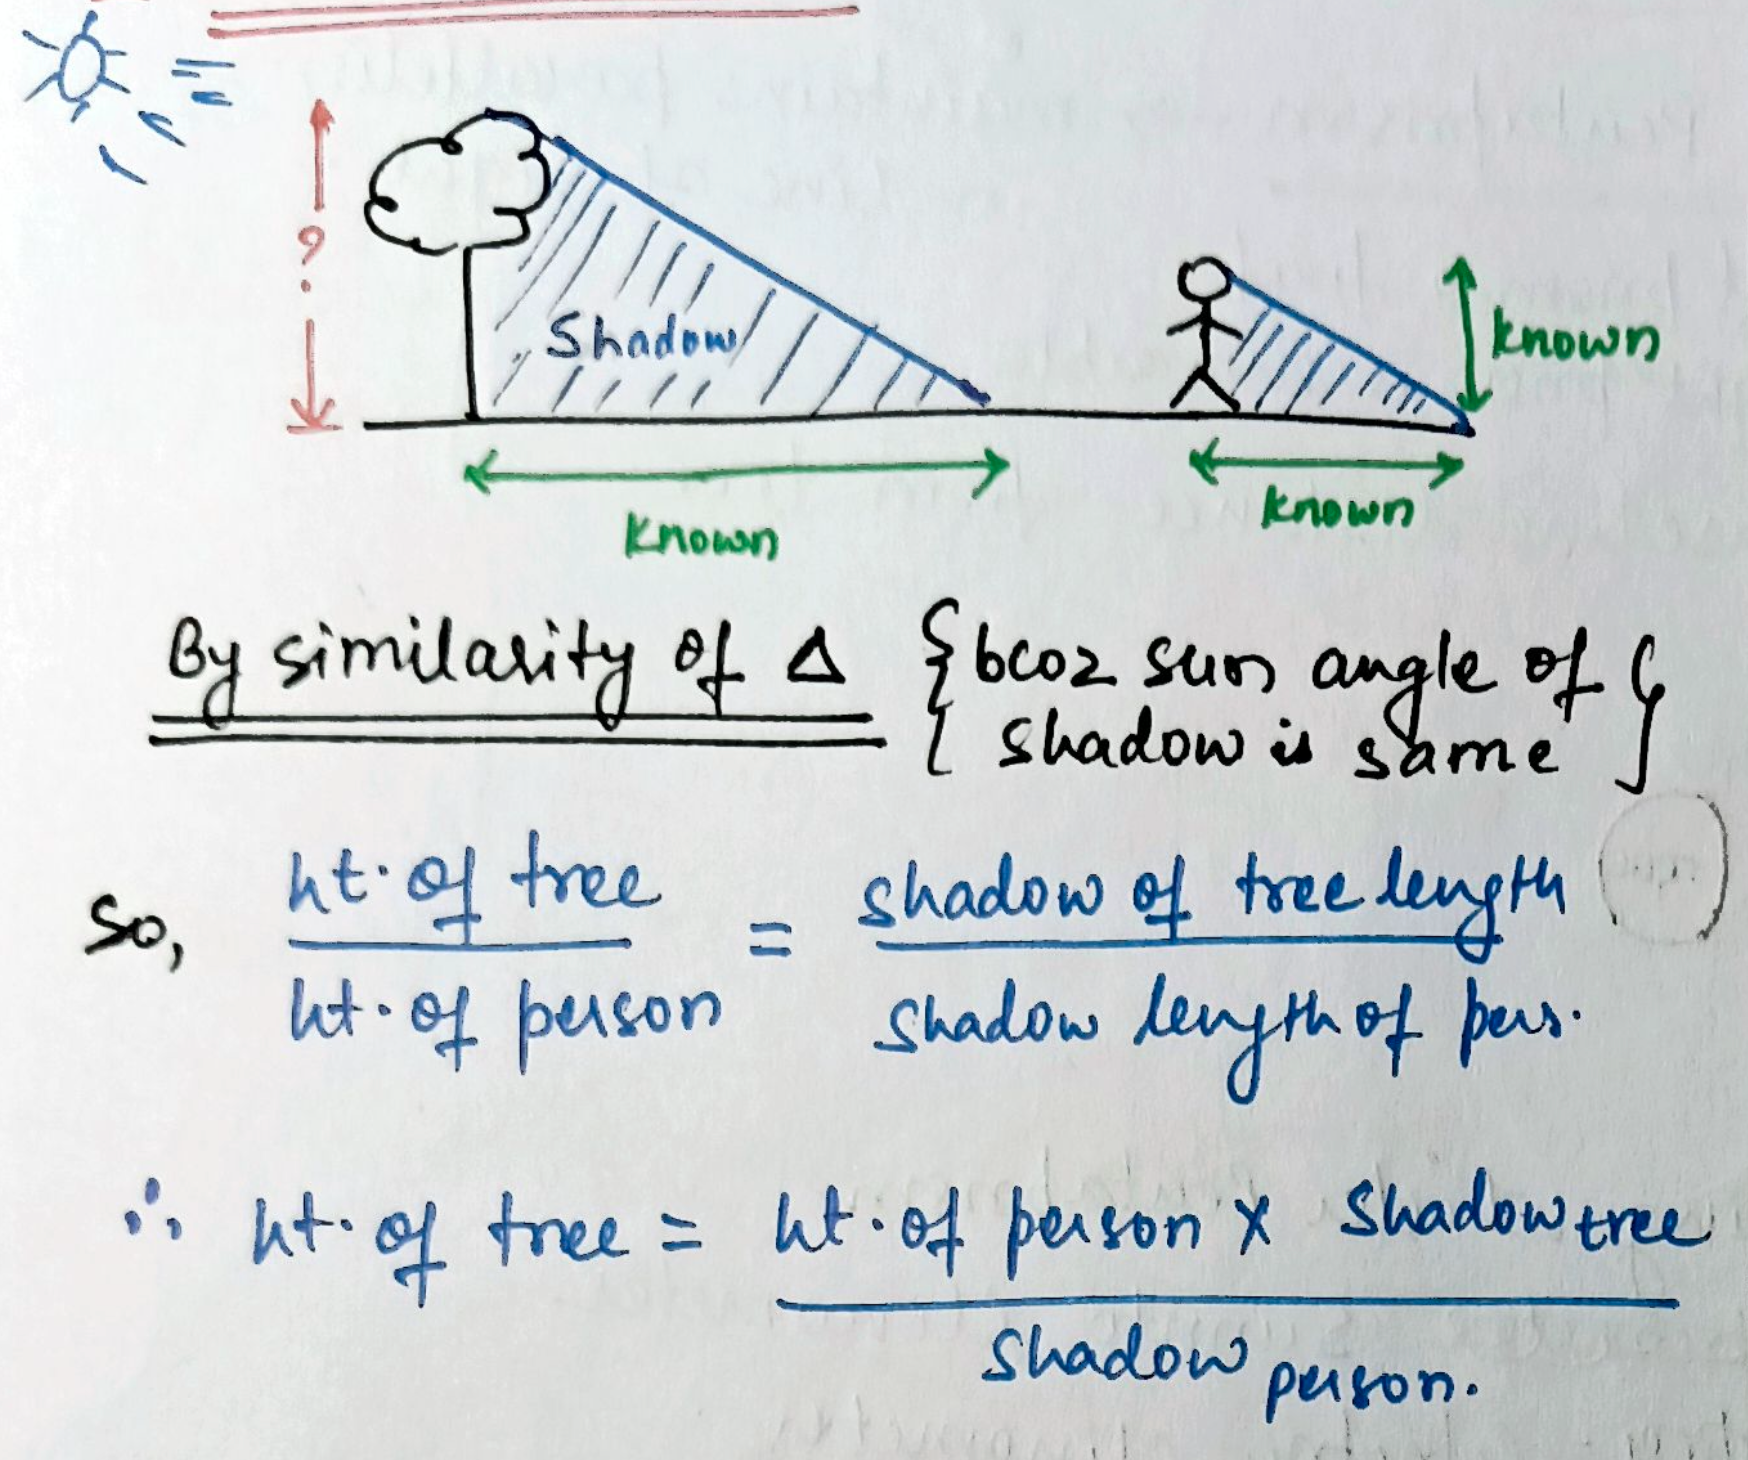 ?
Shadow
Known
Known
Known
By similarity of Δ {bcoz sun angle of
shadow is same}
So, ht. of tree / ht. of person = shadow of tree length / shadow length of pers.
∴ ht. of tree = ht. of person x Shadow tree / Shadow person.